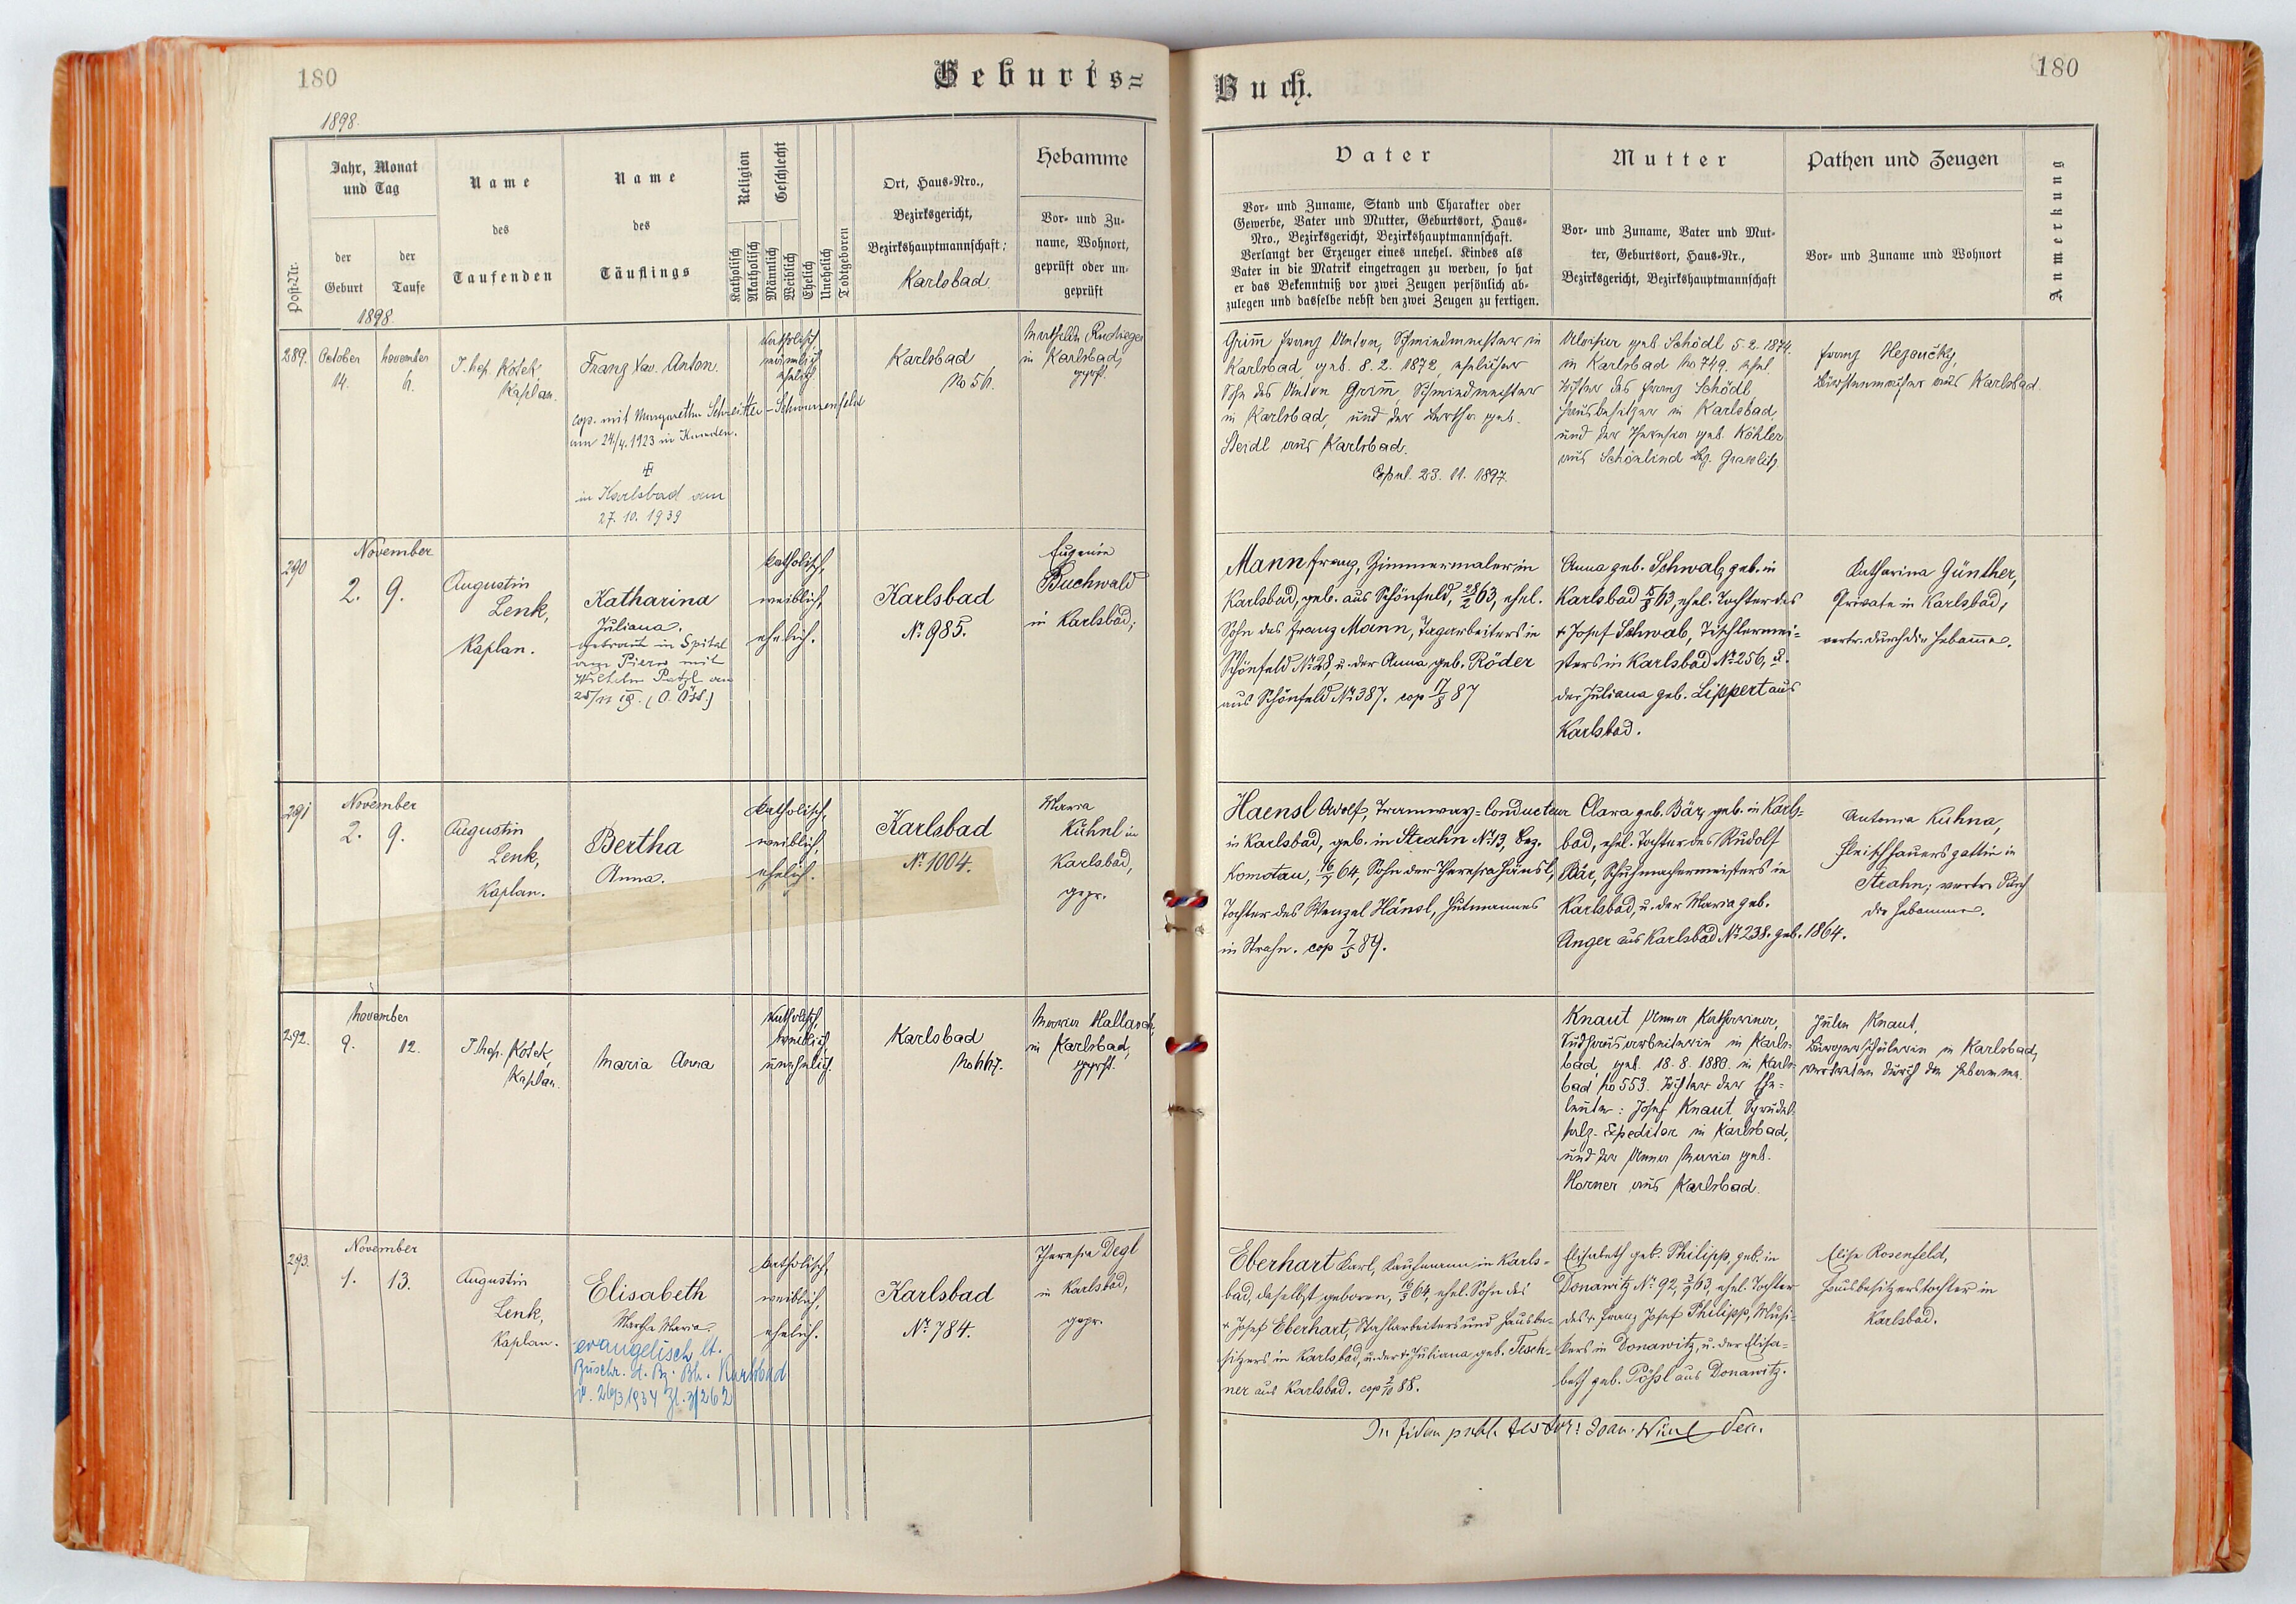 180
Geburts=
1898.
Post-Nr.
Jahr, Monat
und Tag
der
Geburt
der
Taufe
1898.
Name
des
Taufenden
Name
des
Täuflings
Religion
Katholisch
Akatholisch
Geschlecht
Männlich
Weiblich
Ehelich
Unehelich
Todtgeboren
Ort, Haus-Nro.,
Bezirksgericht,
Bezirkshauptmannschaft:
Karlsbad
Hebamme
Vor- und Zu-
name, Wohnort,
geprüft oder un-
geprüft
289.
October
14.
November
6.
Kaplan.
Franz Xav. Anton.
cop. mit Margaretha
am 24/4. 1923 in
in Karlsbad am
27. 10. 1939
katholisch
männlich
ehelich.
Karlsbad
No 56.
Mathilde
in Karlsbad,
geprft.
290
November
2. 9.
Augustin
Lenk,
Kaplan.
Katharina
Juliana.
getraut in Spital
am Piern mit
Wilhelm
katholisch,
weiblich,
ehelich.
Karlsbad
Nº 985.
Eugenie
Buchwald
in Karlsbad;
291
November
2. 9.
Augustin
Lenk,
Kaplan.
Bertha
Anna.
katholisch,
weiblich,
ehelich.
Karlsbad
Nº 1004.
Maria
Kühnl in
Karlsbad,
gepr.
292.
November
9. 12.
Kaplan.
Maria Anna
katholisch,
weiblich
unehelich.
Karlsbad
Maria Hallasch
in Karlsbad,
geprft.
293.
November
1. 13.
Augustin
Lenk,
Kaplan.
Elisabeth
Martha Maria.
evangelisch lt.
Zuschr. d. Bz. Bh. Karlsbad
katholisch,
weiblich,
ehelich.
Karlsbad
Nº 784.
Theresia Degl
in Karlsbad,
gepr.
Buch.
180
Vater
Vor- und Zuname, Stand und Charakter oder
Gewerbe, Vater und Mutter, Geburtsort, Haus-
Nro., Bezirksgericht, Bezirkshauptmannschaft.
Verlangt der Erzeuger eines unehel. Kindes als
Vater in die Matrik eingetragen zu werden, so hat
er das Bekenntniß vor zwei Zeugen persönlich ab-
zulegen und dasselbe nebst den zwei Zeugen zu fertigen.
Mutter
Vor- und Zuname, Vater und Mut-
ter, Geburtsort, Haus-Nr.,
Bezirksgericht, Bezirkshauptmannschaft
Pathen und Zeugen
Vor- und Zuname und Wohnort
Anmerkung
Grim̅ Franz Anton, Schmiedmeister in
Karlsbad, geb. 8. 2. 1872, ehelicher
Sohn des Anton Grim̅, Schmiedmeister
in Karlsbad, und der Bertha geb.
Steidl aus Karlsbad.
Copul. 23. 11. 1897.
Aloisia geb. Schödl 5. 2. 1874.
in Karlsbad No 749. ehel.
Tochter des Franz Schödl
Hausbesitzer in Karlsbad
und der Theresia geb. Köhler
aus Schönlind Bz. Graslitz.
Franz
Bürstenmacher aus Karlsbad.
Mann Franz, Zimmermaler in
Karlsbad, geb. aus Schönfeld, 28/2 63, ehel.
Sohn des Franz Mann, Tagarbeiters in
Schönfeld Nº 28, u. der Anna geb. Röder
aus Schönfeld Nº 387. cop 17/8 87
Anna geb. Schwab, geb. in
Karlsbad 5/8 63, ehel. Tochter des
† Josef Schwab, Tischlermei-
sters in Karlsbad Nº 256, u.
der Juliana geb. Lippert aus
Karlsbad.
Katharina Günther,
Private in Karlsbad,
vertr. durch die Hebam̅e.
Haensl Adolf, Tramway-Conducteur
in Karlsbad, geb. in Strahn Nº 13, Bez.
Komotau, 16/7 64, Sohn der Theresia Hänsl,
Tochter des Wenzel Hänsl, Hutmannes
in Strahn. cop 7/5 89.
Clara geb. Bär, geb. in Karls-
bad, ehel. Tochter des Rudolf
Bär, Schuhmachermeisters in
Karlsbad, u. der Maria geb.
Anger aus Karlsbad Nº 238. geb. 1864.
Antonia Kuhna,
Fleischhauersgattin in
Strahn; vertr. durch
die Hebamme.
Knaut Anna Katharina,
Sudhausarbeiterin in Karls-
bad, geb. 18. 8. 1880. in Karls-
bad No 553. Tochter der Ehe-
leute: Josef Knaut, Sprudel-
salz-Expeditor in Karlsbad,
und der Anna Maria geb.
Horner aus Karlsbad.
Julie Knaut,
Bürgerschülerin in Karlsbad,
vertreten durch die Hebamme.
Eberhart Karl, Kaufmann in Karls-
bad, daselbst geboren, 16/3 64, ehel. Sohn des
† Josef Eberhart, Stahlarbeiters und Hausbe-
sitzers in Karlsbad, u. der † Juliana geb. Tesch-
ner aus Karlsbad. cop 2/10 88.
Elisabeth geb. Philipp, geb. in
Donawitz Nº 92, 3/9 63, ehel. Tochter
des † Franz Josef Philipp, Musi-
kers in Donawitz, u. der Elisa-
beth geb. Pößl aus Donawitz.
Elise Rosenfeld,
Hausbesitzerstochter in
Karlsbad.